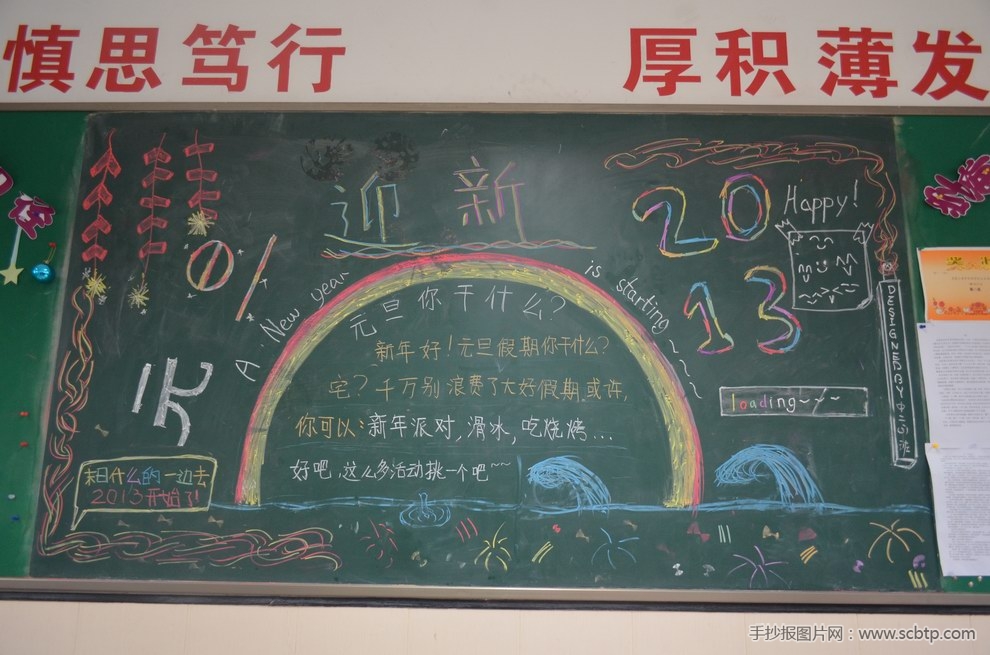 慎思笃行
厚积薄发
迎新
2013
Happy!
元旦
A New year is starting~~~~
元旦你干什么?
新年好!元旦假期你干什么?
宅?千万别浪费了大好假期.或许,
你可以:新年派对,滑冰,吃烧烤...
好吧.这么多活动挑一个吧~~
loading~~~
末日什么的一边去
2013开始了!
DESIGNED BY
手抄报图片网：www.scbtp.com